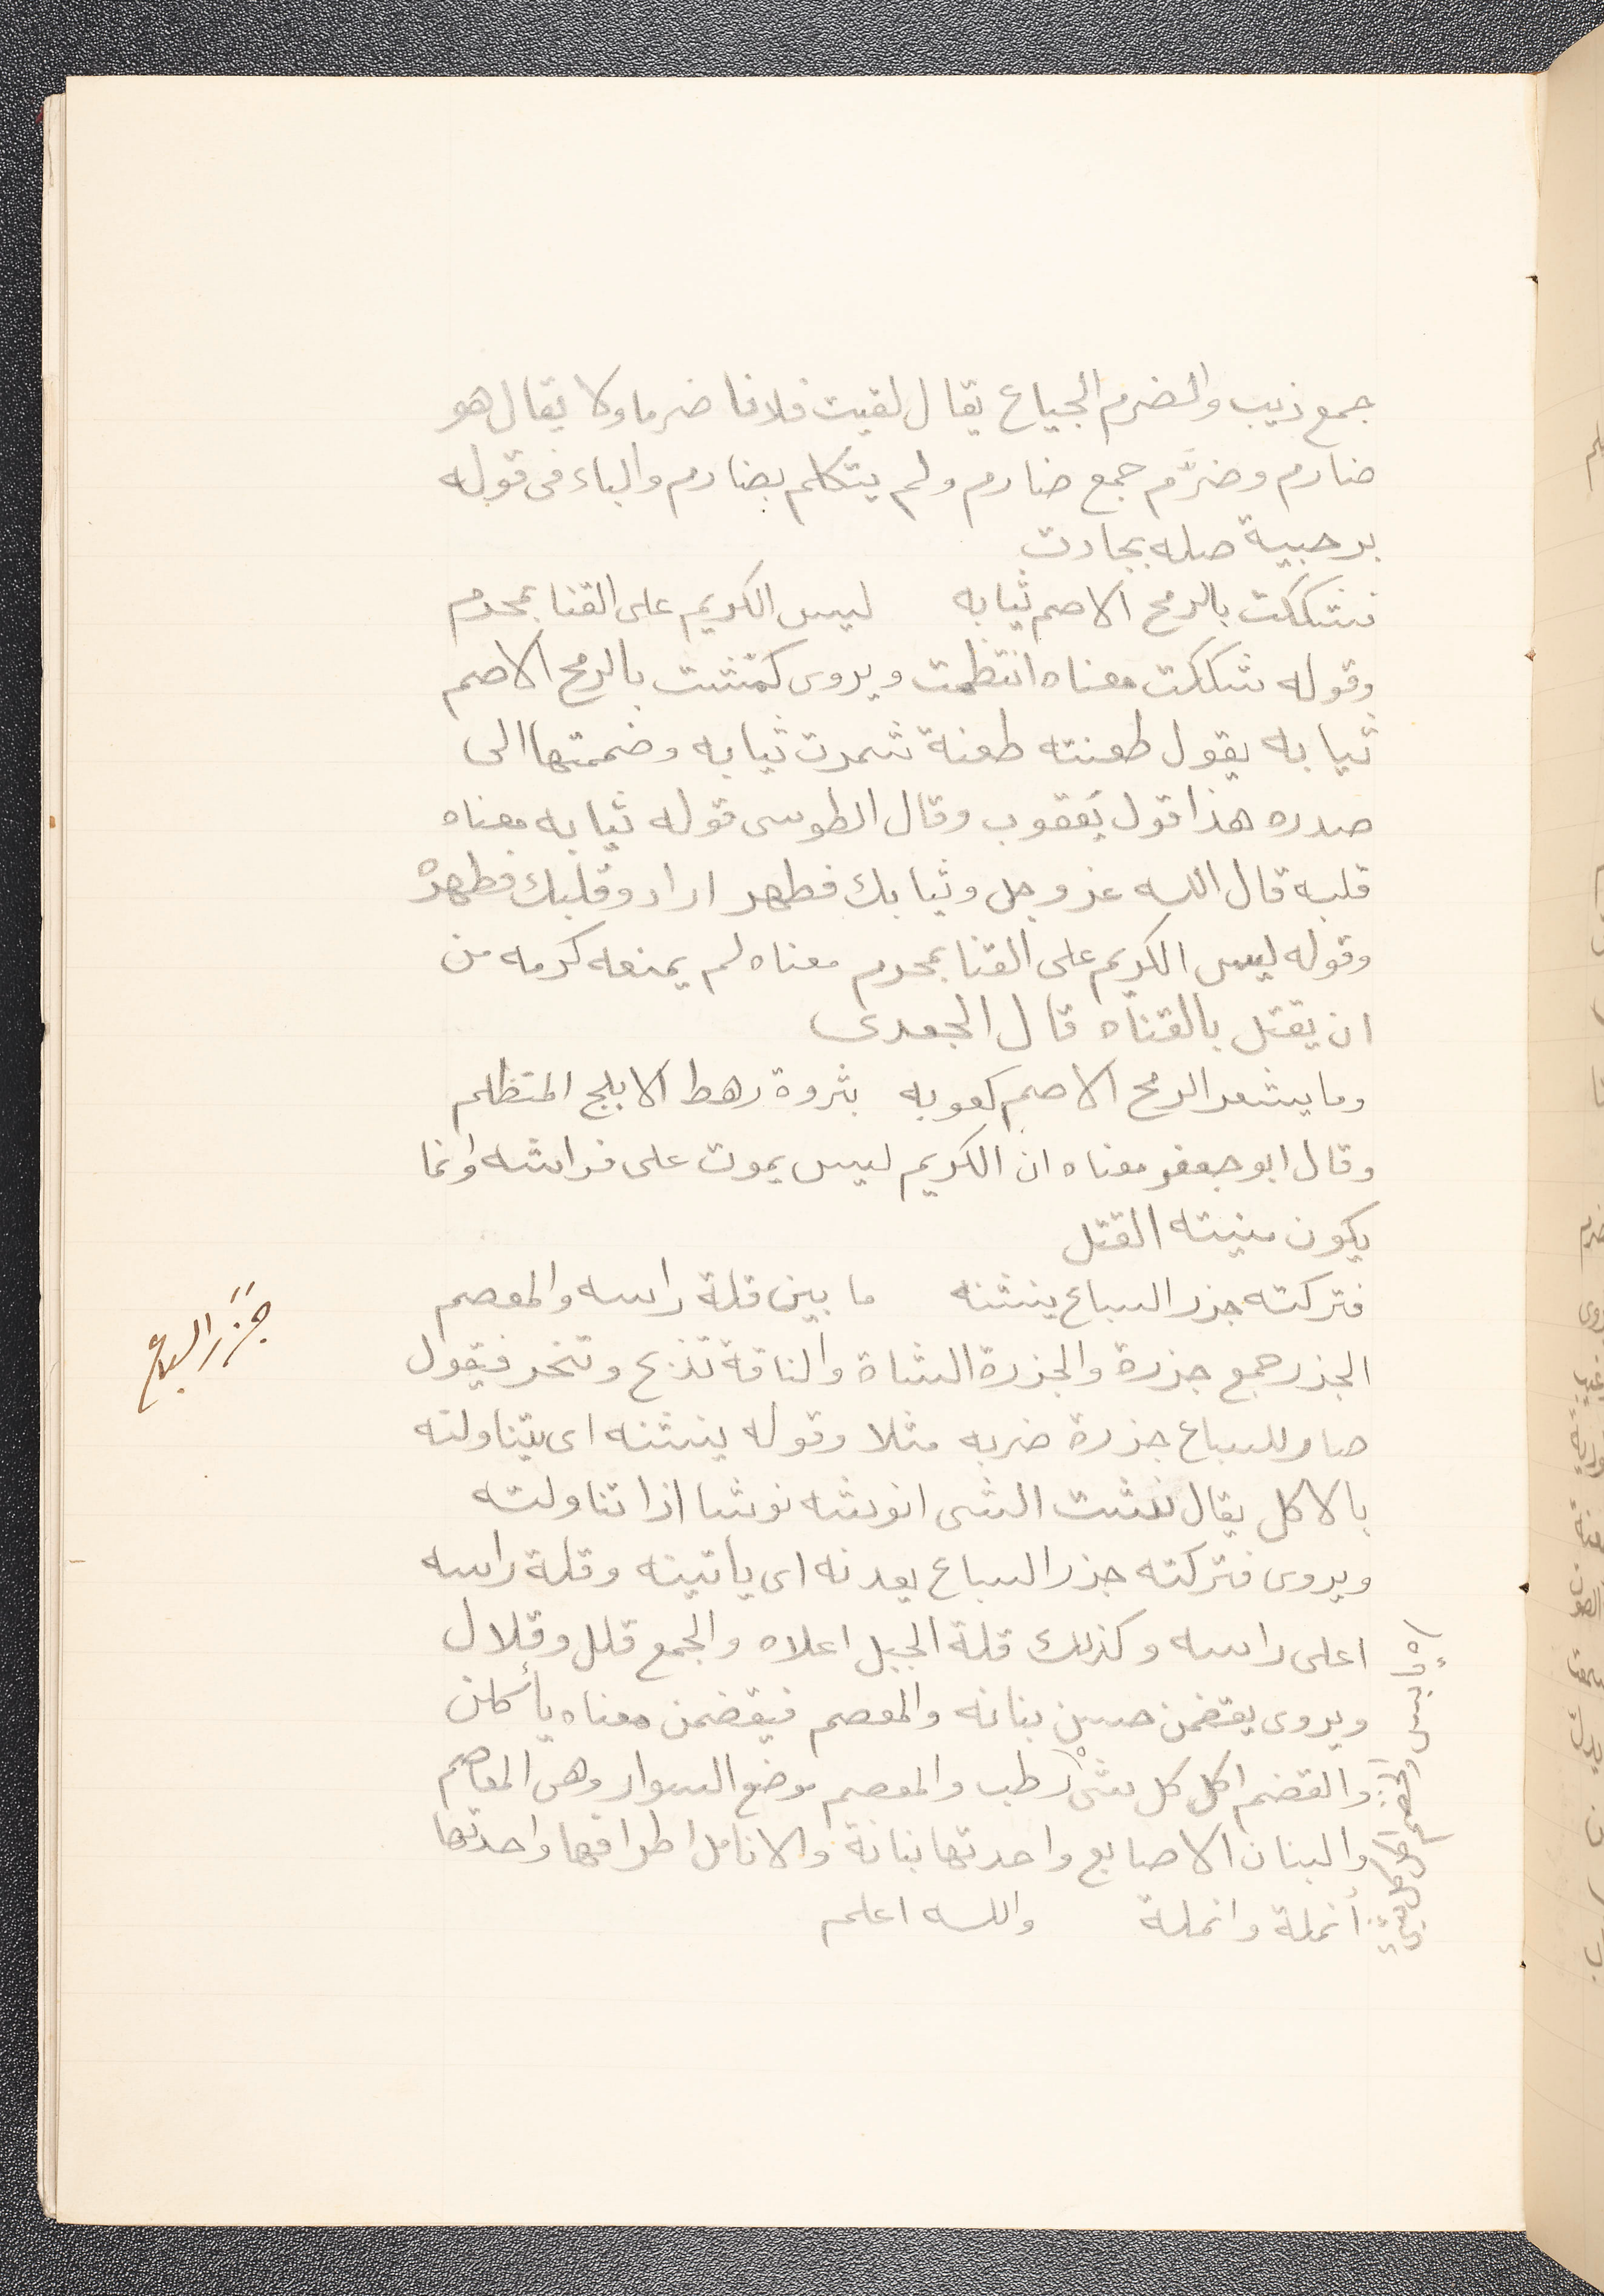 جمع ذيب والضرم الجياع يقال لقيت فلانا ضرما ولا يقال هو
ضارم وضرَّم جمع ضارم ولم يتكلم بضارم والباء فى قوله
برحبية صله بجادت
فشككت بالرمح الاصم ثيابه ليس الكريم على القنا بمحرم
وقوله شككت معناه انتظمت ويروى كمشت بالرمح الاصم
ثيابه يقول طعنته طعنة شمرت ثيابه وضممتها الى
صدره هذا قول يعقوب وقال الطوسى قوله ثيابه معناه
قلبه قال الله عز وجل وثيابك فطهر اراد وقلبك فطهره
وقوله ليس الكريم على القنا بمحرم معناه لم يمنعه كرمه من
ان يقتل بالقناه قال الجعدى
وما يشعر الرمح الاصم كعوبه بثروة رهط الابلج المتظلم
وقال ابو جعفر معناه ان الكريم ليس يموت على فراشه وانما
يكون منيته القتل
فتركته جزر السباع ينشنه ما بين قلة راسه والمعصم
جَزَرَ السباع
الجزر جمع جزرة والجزرة الشاة والناقة تذبح وتنحر فيقول
صار للسباع جزرة ضربه مثلا وقوله ينشنه اى يتناولنه
بالاكل يقال نشت الشى انوشه نوشا اذا تناولته
ويروى فتركته جزر السباع يعدنه اى ياتينه وقلة راسه
اعلى راسه وكذلك قلة الجبل اعلاه والجمع قلل وقلال
ويروى يقضمن حسن بنانه والمعصم فيقضمن معناه يأكلن
والقضم اكل كل شىْ رطب والمعصم موضع السوار وهى المعاصم
والبنان الاصابع واحدتها بنانة والانامل اطرافها واحدتها
أنملة وانملة والله اعلم